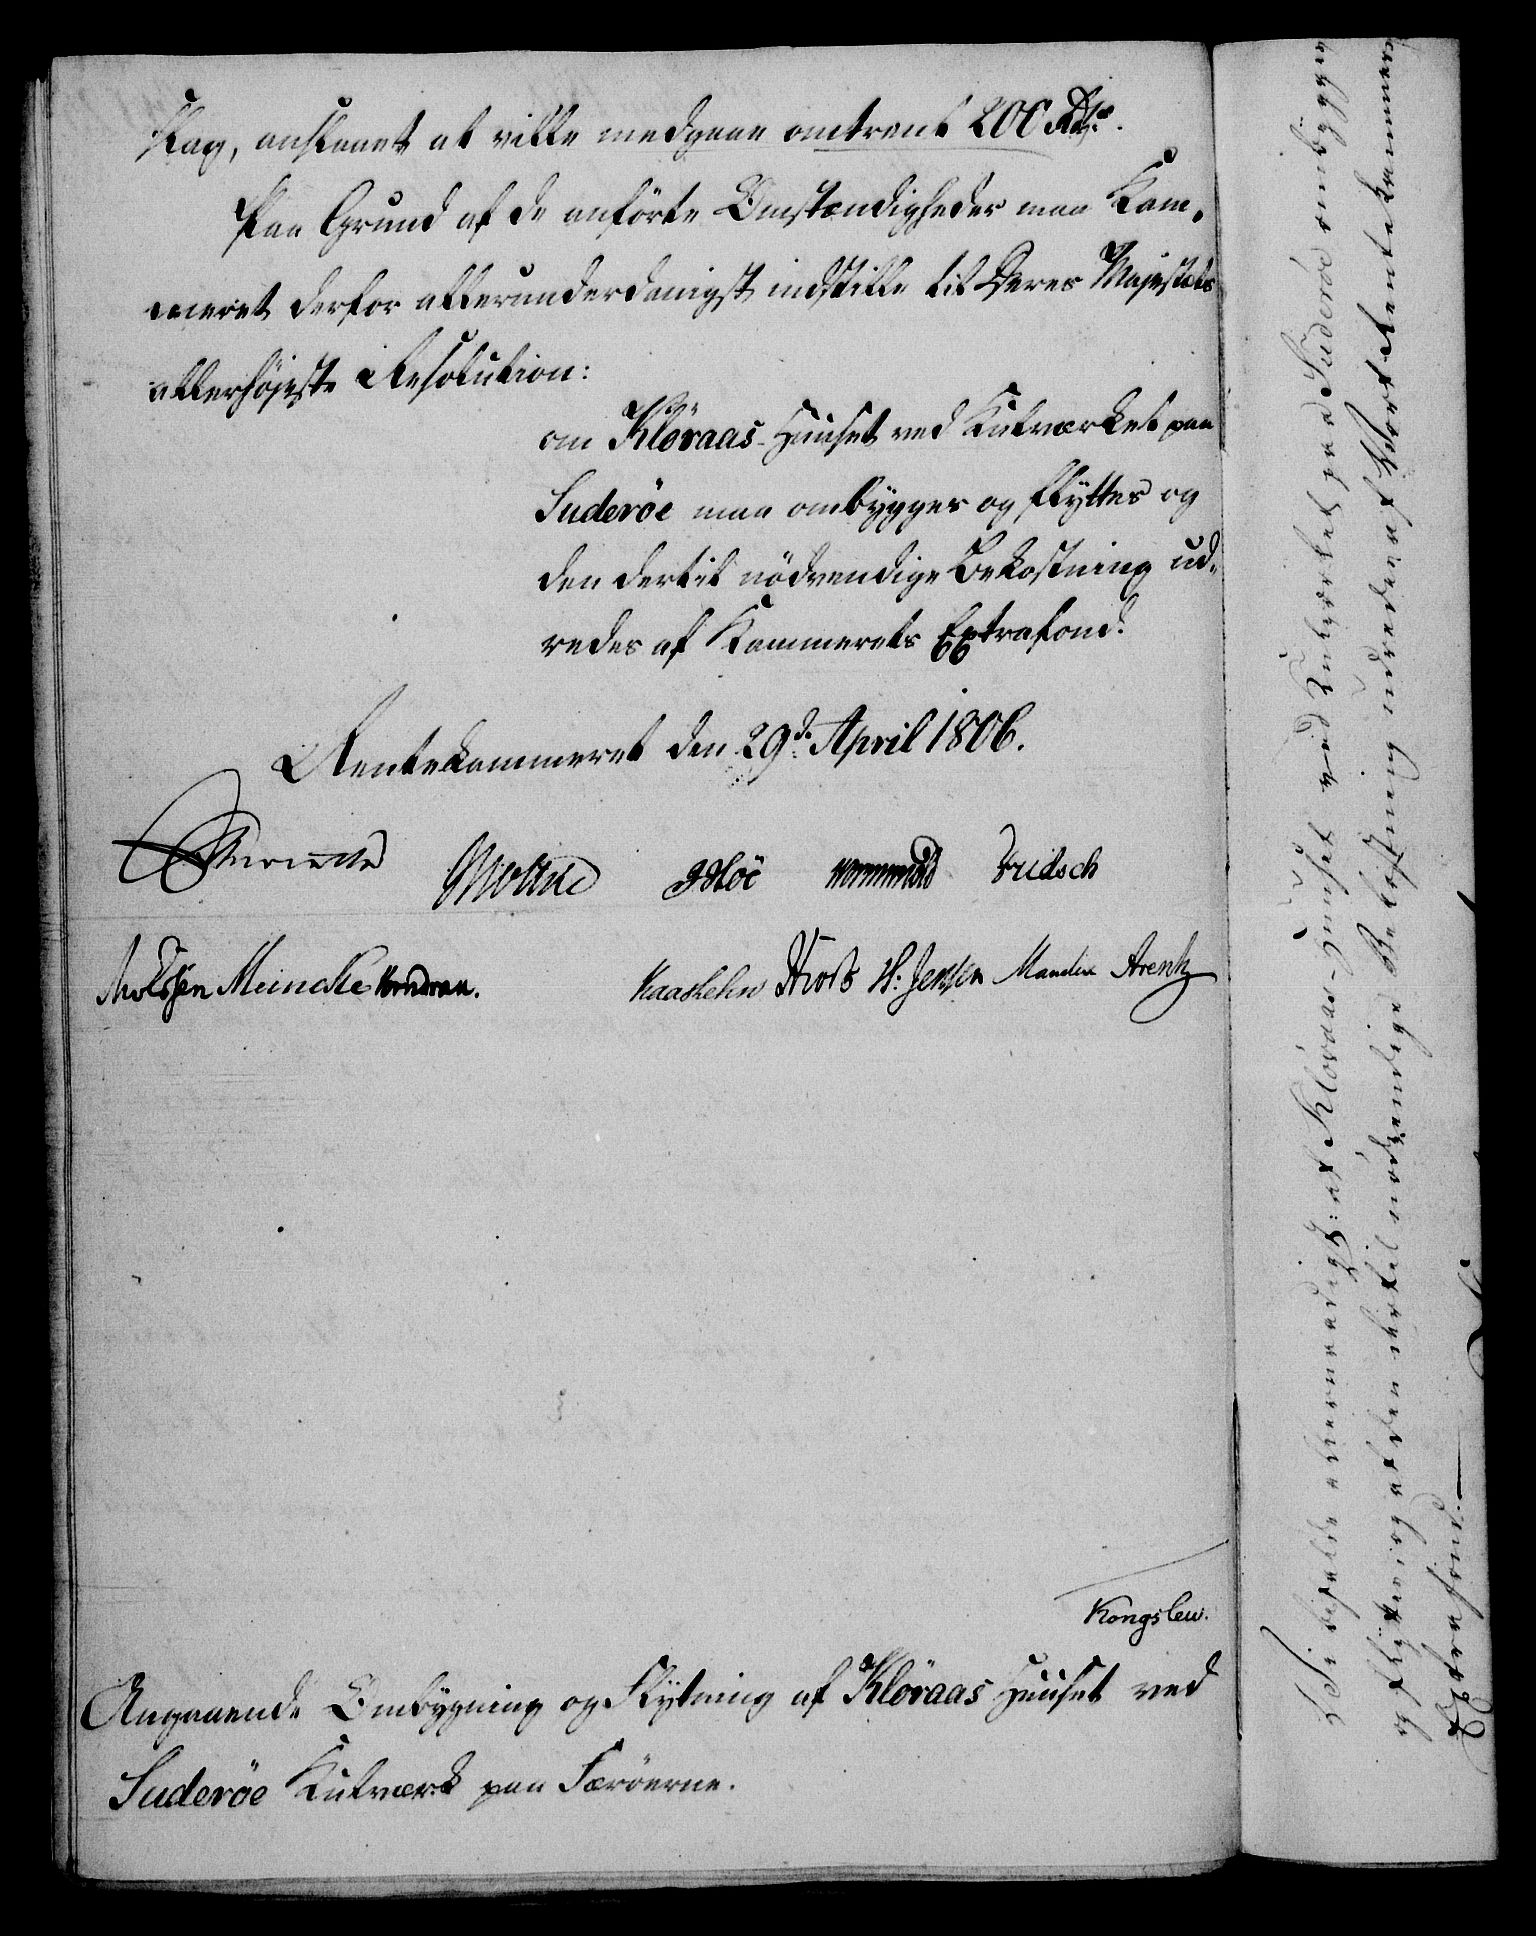 slag, anslaaet at ville medgaae omtrent 200 Rdlr.
Paa Grund af de anförte Omstændigheder maa Kam-
meret derfor allerunderdanigst indstille til Deres Majestæts
allerhöjeste Resolution:
om Klöraas-Huuset ved Kulværket paa
Suderöe maa ombygges og flyttes og
den dertil nödvendige Bekostning ud-
redes af Kammerets Extrafond.
Rentekammeret den 29d. April 1806.
Reventlow Moltke JHöe Wormskiold
Meincke Kaasbehn Hiort H: Jensen Mandix Arentz
Kongslew.
Angaaende Ombygning og Flytning af Klöraas Huuset ved
Suderöe Kulværk paa Færöerne.
Vi bifalde allernaadigst: at Klöraas-Huuset ved Kulværket paa Suderöe ombygges
og flyttes og at den dertil nödvendige Bekostning udredes af Vort Rentekammers
Extrafond.